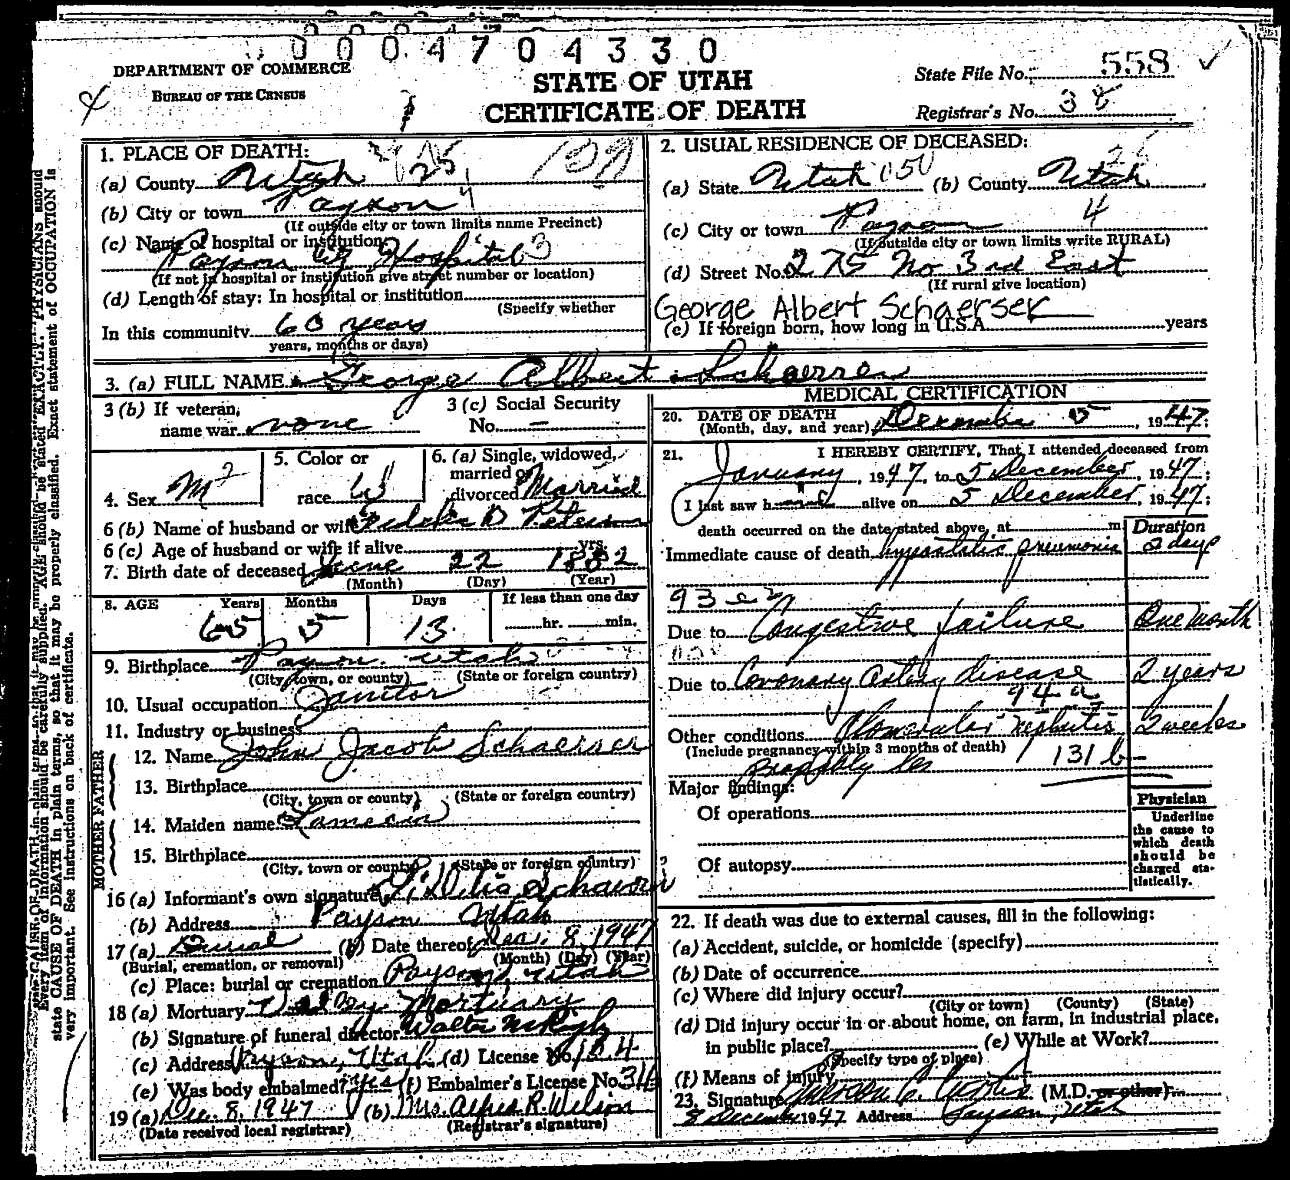 0004704330
DEPARTMENT OF COMMERCE
BUREAU OF THE CENSUS
STATE OF UTAH
CERTIFICATE OF DEATH
State File No. 558
Registrar's No. 38
1. PLACE OF DEATH:
(a) County Utah 25
(b) City or town Payson 4
(If outside city or town limits name Precinct)
(c) Name of hospital or institution
Payson City Hospital 3
(If not in hospital or institution give street number or location)
(d) Length of stay: In hospital or institution
(Specify whether
In this community 60 years
years, months or days)
2. USUAL RESIDENCE OF DECEASED:
(a) State Utah 050 (b) County Utah
(c) City or town Payson 4
(If outside city or town limits write RURAL)
(d) Street No. 275 No 3rd East
(If rural give location)
George Albert Schaerrer
(e) If foreign born, how long in U.S.A. years
3. (a) FULL NAME George Albert Schaerrer
3 (b) If veteran, name war none
3 (c) Social Security No. —
4. Sex M
5. Color or race W
6. (a) Single, widowed, married or divorced Married
6 (b) Name of husband or wife
6 (c) Age of husband or wife if alive yrs.
7. Birth date of deceased June 22 1882
(Month) (Day) (Year)
8. AGE Years Months Days If less than one day
65 5 13 hr. min.
9. Birthplace Payson, Utah
(City, town, or county) (State or foreign country)
10. Usual occupation Janitor
11. Industry or business
FATHER
12. Name John Jacob Schaerrer
13. Birthplace
(City, town or county) (State or foreign country)
MOTHER
14. Maiden name
15. Birthplace
(City, town or county) (State or foreign country)
16 (a) Informant's own signature
(b) Address Payson Utah
17 (a) Burial (b) Date thereof Dec. 8, 1947
(Burial, cremation, or removal) (Month) (Day) (Year)
(c) Place: burial or cremation Payson, Utah
18 (a) Mortuary Mortuary
(b) Signature of funeral director Walter
(c) Address Payson, Utah (d) License No. 134
(e) Was body embalmed? yes (f) Embalmer's License No.
19 (a) Dec. 8, 1947 (b) Mrs. Alfred R. Wilson
(Date received local registrar) (Registrar's signature)
MEDICAL CERTIFICATION
20. DATE OF DEATH
(Month, day, and year) December 5, 1947;
21. I HEREBY CERTIFY, That I attended deceased from
January, 1947, to 5 December, 1947;
I last saw him alive on 5 December, 1947;
death occurred on the date stated above, at m. Duration
Immediate cause of death hypostatic pneumonia 2 days
93
Due to Congestive failure One month
Due to Coronary Artery disease 2 years
94 a
Other conditions Glomerular Nephritis 2 weeks
(Include pregnancy within 3 months of death) 131 b
Major findings:
Of operations
Of autopsy
Physician
Underline
the cause to
which death
should be
charged sta-
tistically.
22. If death was due to external causes, fill in the following:
(a) Accident, suicide, or homicide (specify)
(b) Date of occurrence
(c) Where did injury occur?
(City or town) (County) (State)
(d) Did injury occur in or about home, on farm, in industrial place,
in public place? (e) While at Work?
(Specify type of place)
(f) Means of injury
23. Signature (M.D. or other)
8 December 1947 Address Payson, Utah
Every item of information should be carefully supplied. AGE should be stated EXACTLY. PHYSICIANS should
state CAUSE OF DEATH in plain terms, so that it may be properly classified. Exact statement of OCCUPATION is
very important. See instructions on back of certificate.